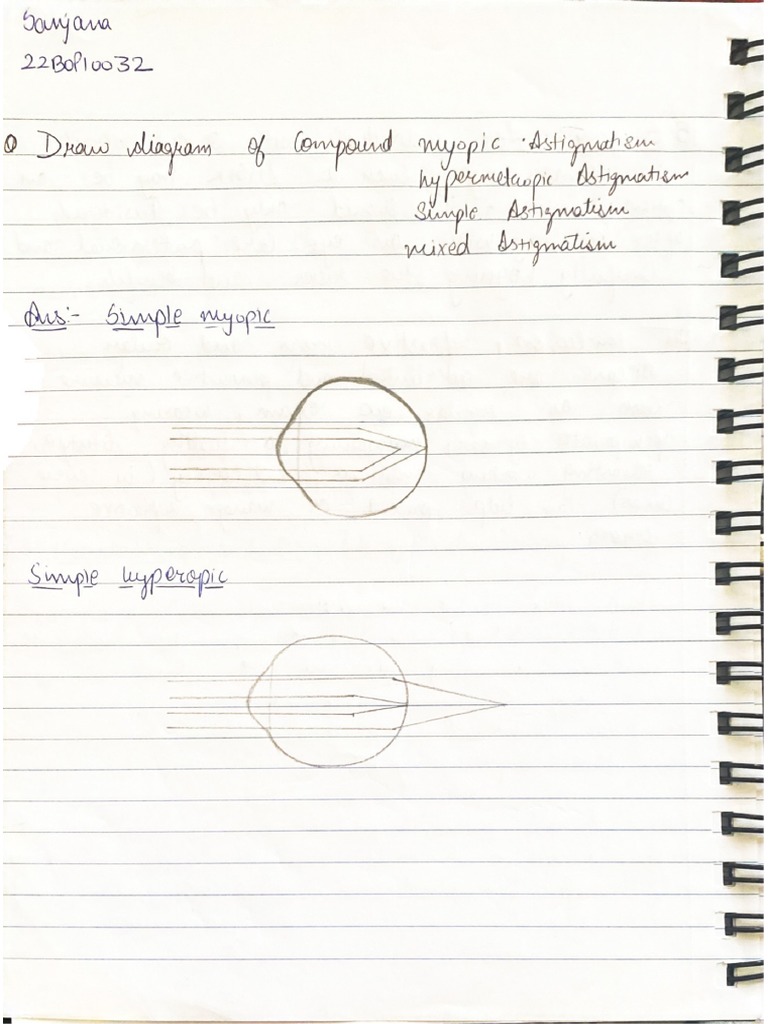 Sanjana
22BOP10032
Q Draw diagram of Compound myopic Astigmatism
hypermetropic Astigmatism
Simple Astigmatism
mixed Astigmatism
Ans:- Simple myopic
Simple hyperopic